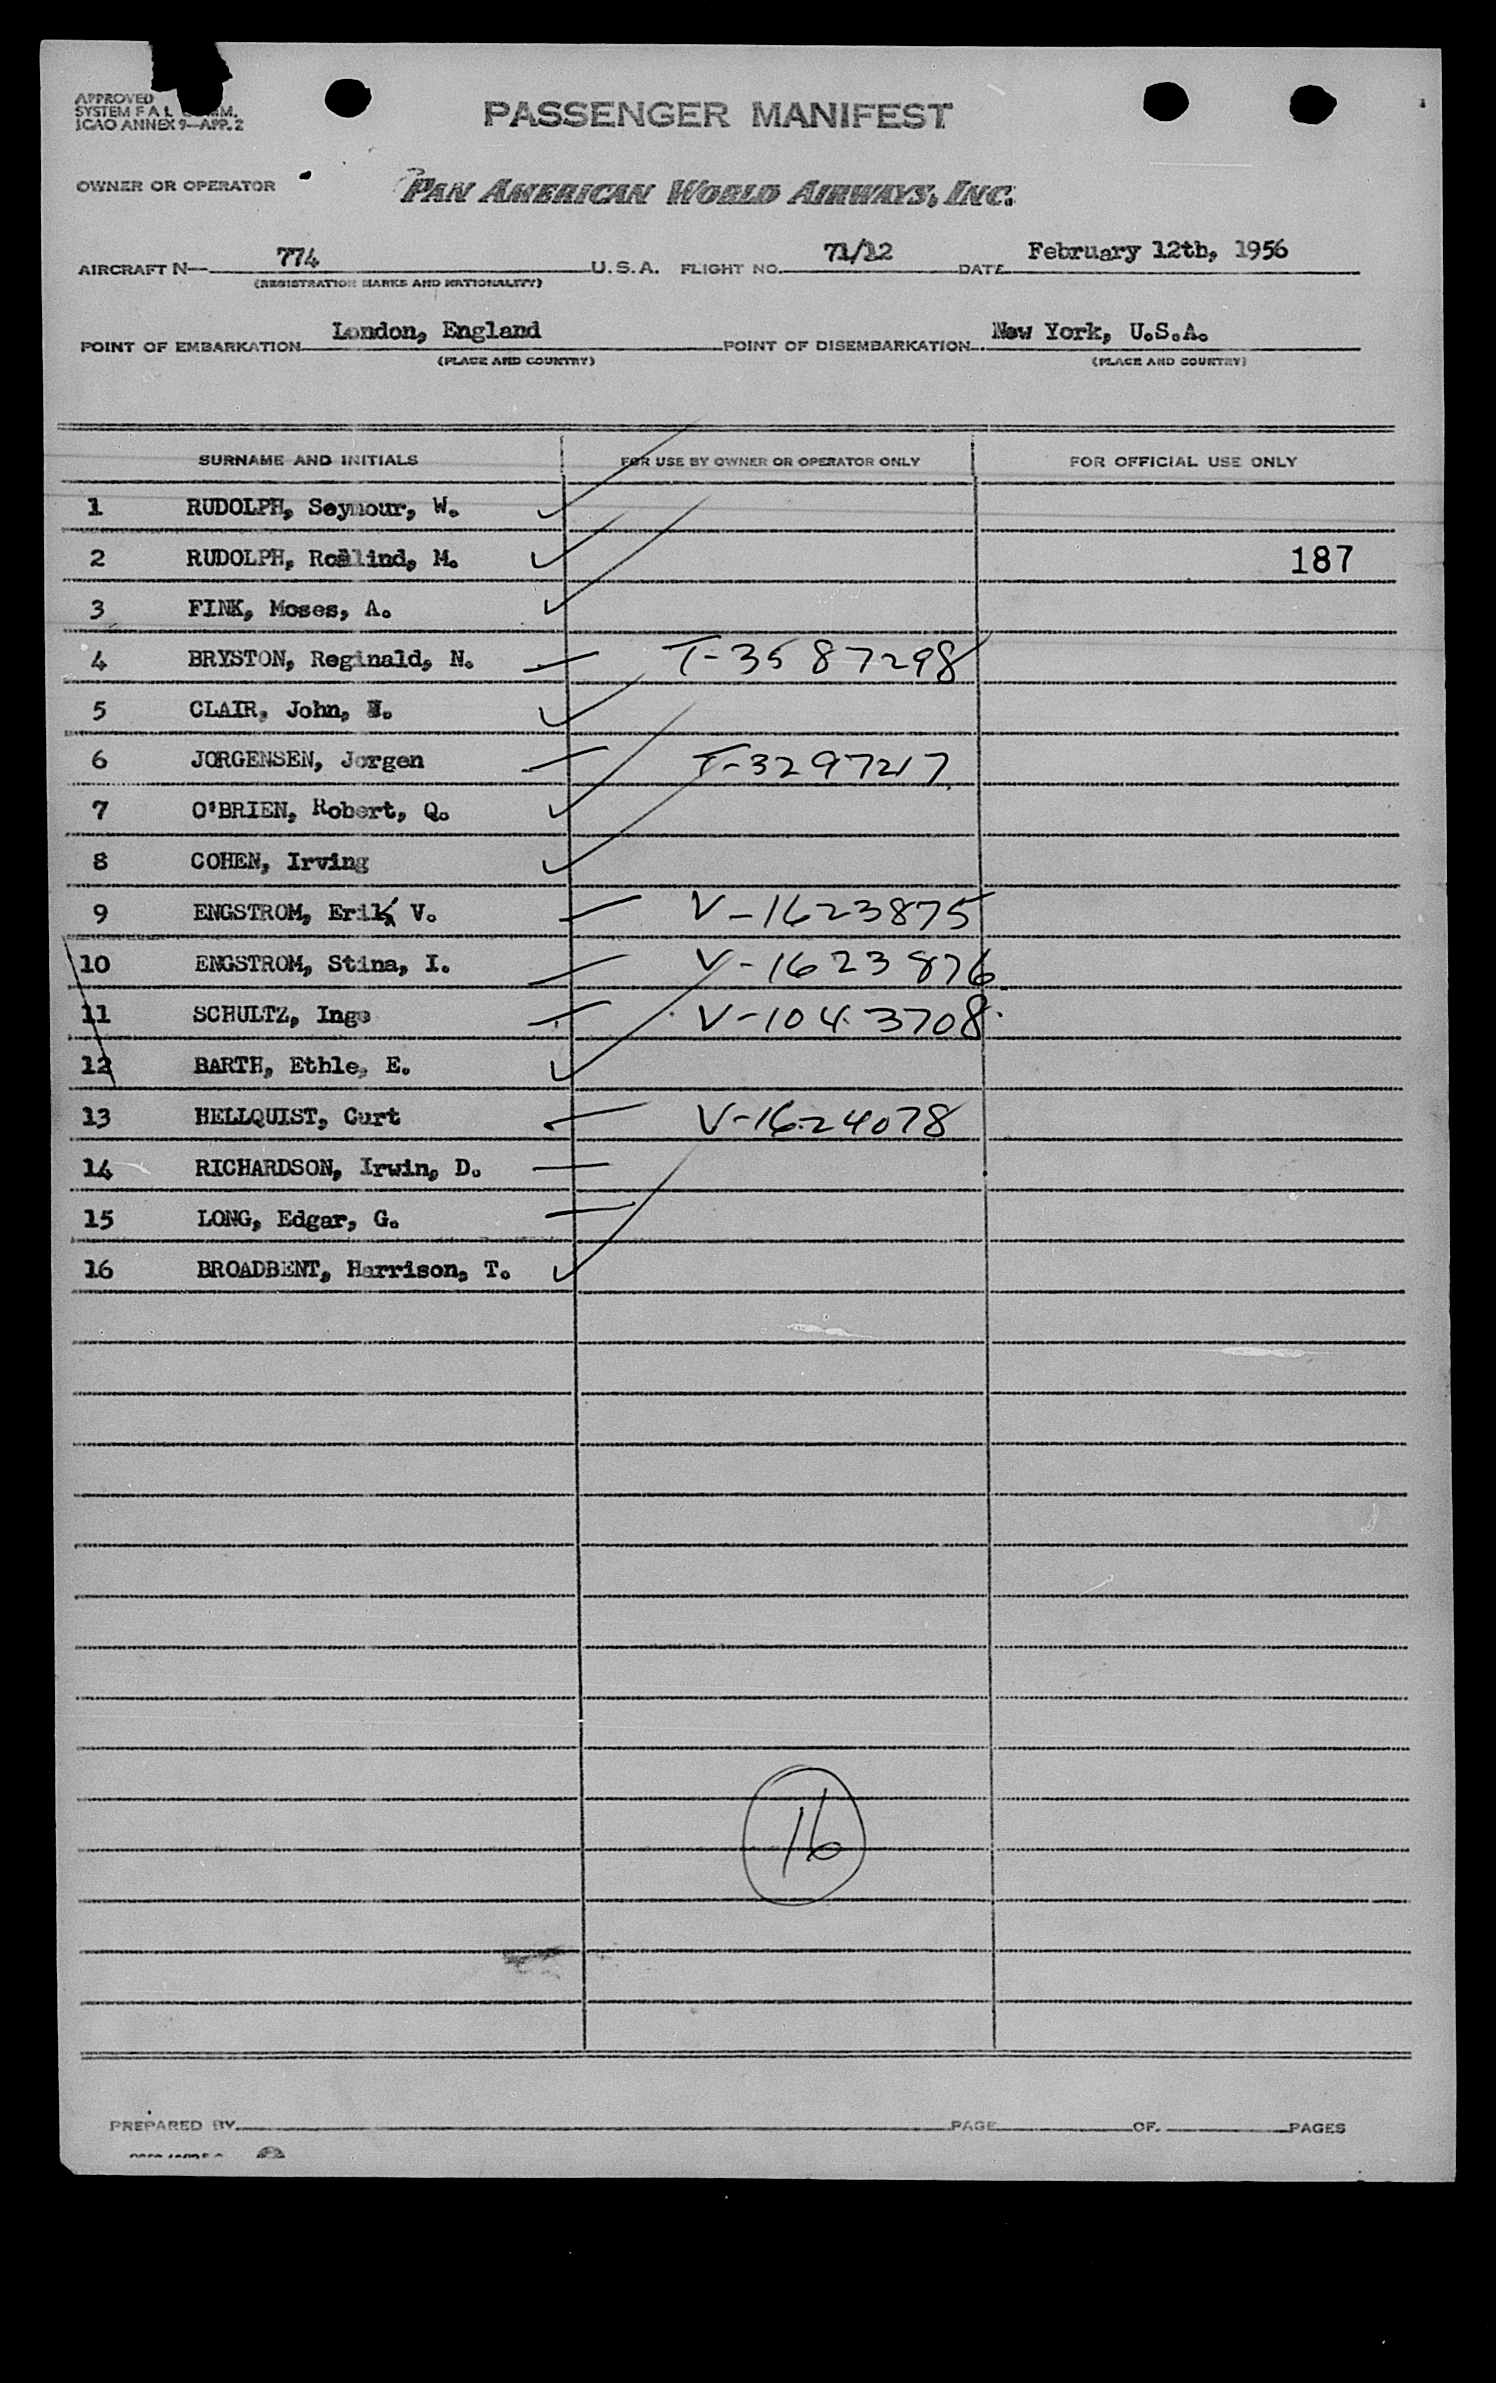 PASSENGER MANIFEST
APPROVED
SYSTEM F A L COMM.
ICAO ANNEX 9—APP. 2
OWNER OR OPERATOR PAN AMERICAN WORLD AIRWAYS, INC.
AIRCRAFT N— 774 U.S.A. FLIGHT NO. 71/12 DATE February 12th, 1956
(REGISTRATION MARKS AND NATIONALITY)
POINT OF EMBARKATION London, England POINT OF DISEMBARKATION New York, U.S.A.
(PLACE AND COUNTRY) (PLACE AND COUNTRY)
SURNAME AND INITIALS FOR USE BY OWNER OR OPERATOR ONLY FOR OFFICIAL USE ONLY
1 RUDOLPH, Seymour, W.
2 RUDOLPH, Rosalind, M. 187
3 FINK, Moses, A.
4 BRYSTON, Reginald, N. T-3587298
5 CLAIR, John,
6 JORGENSEN, Jorgen T-3297217
7 O'BRIEN, Robert, Q.
8 COHEN, Irving
9 ENGSTROM, Erik, V. V-1623875
10 ENGSTROM, Stina, I. V-1623876
11 SCHULTZ, Inge V-1043708
12 BARTH, Ethle, E.
13 HELLQUIST, Curt V-1624078
14 RICHARDSON, Irwin, D.
15 LONG, Edgar, G.
16 BROADBENT, Harrison, T.
16
PREPARED BY PAGE OF PAGES